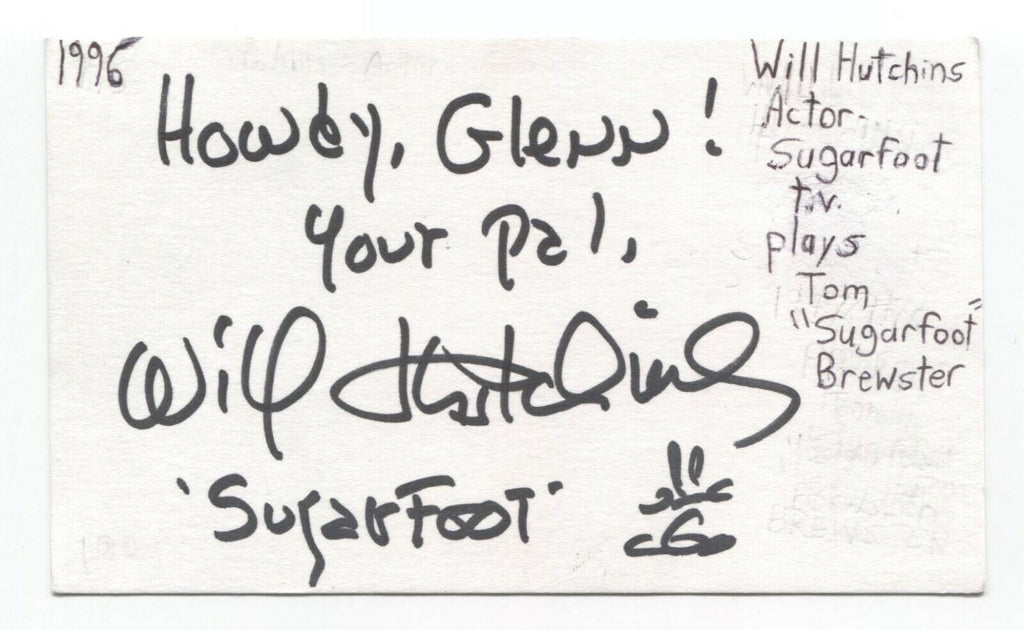 1996
Howdy, Glenn!
Your Pal,
Will Hutchins
'SugarFoot'
Will Hutchins
Actor-
Sugarfoot
t.v.
plays
Tom
"Sugarfoot"
Brewster